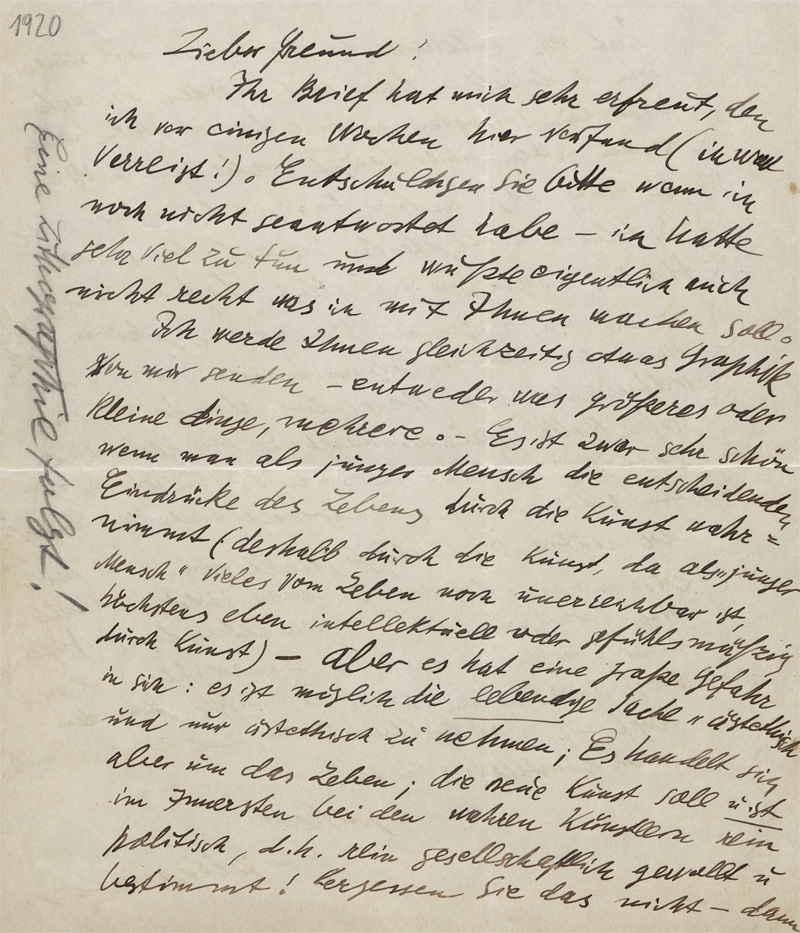 1920
Lieber Freund!
Ihr Brief hat mich sehr erfreut, den
ich vor einigen Wochen hier vorfand (ich war
verreist!). Entschuldigen Sie bitte wenn ich
noch nicht geantwortet habe – ich hatte
sehr viel zu tun und wußte eigentlich auch
nicht recht was ich mit Ihnen machen soll.
Ich werde Ihnen gleichzeitig etwas Graphik
von mir senden – entweder was größeres oder
kleine Dinge, mehrere. – Es ist zwar sehr schön
wenn man als junger Mensch die entscheidenden
Eindrücke des Lebens durch die Kunst wahr=
nimmt (deshalb durch die Kunst, da als „junger
Mensch" vieles vom Leben noch unerreichbar ist,
höchstens eben intellektuell oder gefühlsmäßig
durch Kunst) – aber es hat eine große Gefahr
in sich: es ist möglich die lebendge Sache „ästethisch
und nur ästethisch zu nehmen; Es handelt sich
aber um das Leben; die neue Kunst soll u. ist
im Innersten bei den wahren Künstlern rein
politisch, d.h. rein gesellschaftlich gewollt u
bestimmt! Vergessen Sie das nicht – dann
Eine Lithographie folgt!